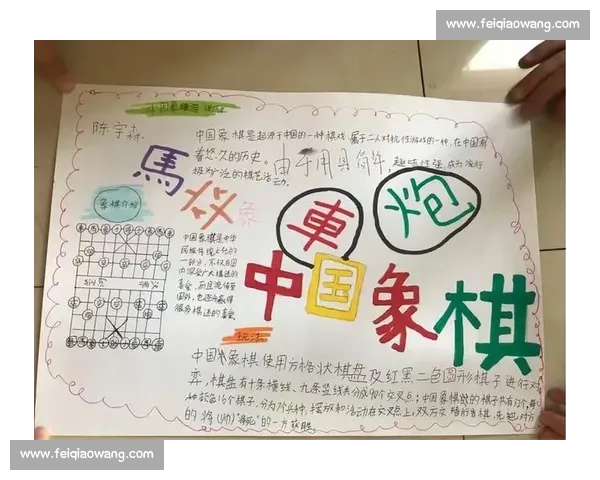 www.feiqiaowang.com
陈宇森
中国象棋是起源于中国的一种棋戏,属于二人对抗性游戏的一种,在中国有
着悠久的历史。由于用具简单,趣味性强,成为流行
极为广泛的棋艺活动。
馬
象
車
炮
象棋介绍
中国象棋是中华
民族传统文化的
一部分,不仅在国
内深受广大棋迷的
喜爱,而且流传至
国外,也逐渐赢得
很多棋迷的喜爱
中国象棋
玩法
中国象棋使用方格状棋盘及红黑二色圆形棋子进行对
弈,棋盘有十条横线、九条竖线共分成90个交叉点;中国象棋的棋子共有32个,每
种颜色16个棋子,分为7个兵种,摆放和活动在交叉点上,双方交替行棋,先把对方
的将(帅)“将死”的一方获胜。
www.feiqiaowang.com